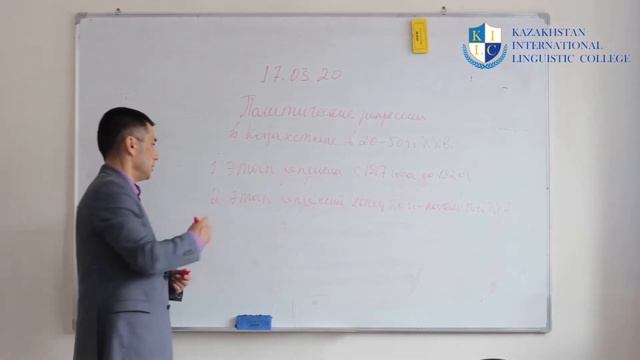 KAZAKHSTAN
INTERNATIONAL
LINGUISTIC COLLEGE
K I
L C
17.03.20
Политические репрессии
в Казахстане в 20-50 гг. XX в.
1 Этап репрессий с 1917 года до 1920
2 Этап репрессий конец 20 гг - начало